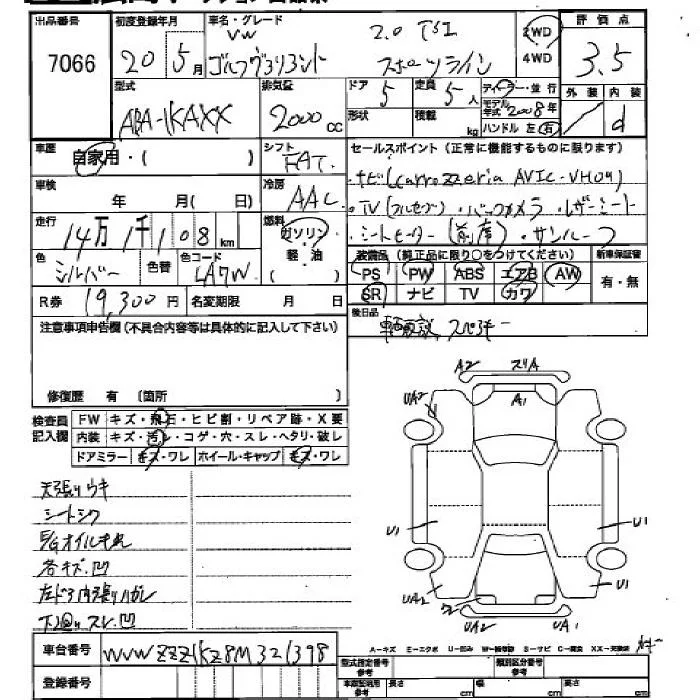 出品番号 初度登録年月 車名・グレード 評価点
7066 20年5月 VW 2.0 TSI 2WD 3.5
ゴルフヴァリアント スポーツライン 4WD
型式 排気量 ドア 定員 ディーラー・並行 外装 内装
ABA-1KAXX 2000cc 5 5人 モデル年式 2008年 d
形状 積載 kg ハンドル 左 右
車歴 自家用・( ) シフト FAT セールスポイント(正常に機能するものに限ります)
車検 年 月( 日) 冷房 AAC ・ナビ(carrozzeria AVIC-VH09)
・TV(フルセグ)・バックカメラ・レザーシート
走行 14万1千108km 燃料 ガソリン 軽・油 ・シートヒーター(前席)・サンルーフ
色 シルバー 色替 色コード LA7W 装備品(純正品に限り○をつけてください) 新車保証書
PS PW ABS エアB AW 有・無
SR ナビ TV カワ
R券 19,300円 名変期限 月 日
後日品 スペアキー
注意事項申告欄(不具合内容等は具体的に記入して下さい)
修復歴 有 〔箇所 〕
検査員記入欄 FW キズ・飛石・ヒビ割・リペア跡・X要
内装 キズ・汚レ・コゲ・穴・スレ・ヘタリ・破レ
ドアミラー キズ・ワレ ホイール・キャップ キズ・ワレ
A2 スリA
UA2 A1
天張りウキ
シートシワ
E/Gオイルもれ
各キズ.凹
U1 U1
左ドア内張りハガレ
UA2 U1
UA2 UA1
下回りスレ.凹
A-キズ E-エクボ U-凹み W-補修跡 S-サビ C-腐食 XX-交換済
車台番号 WVWZZZ1KZ8M321398
型式指定番号 参考 類別区分番号 参考
登録番号
車検証記載 参考 長さ cm 幅 cm 高さ cm